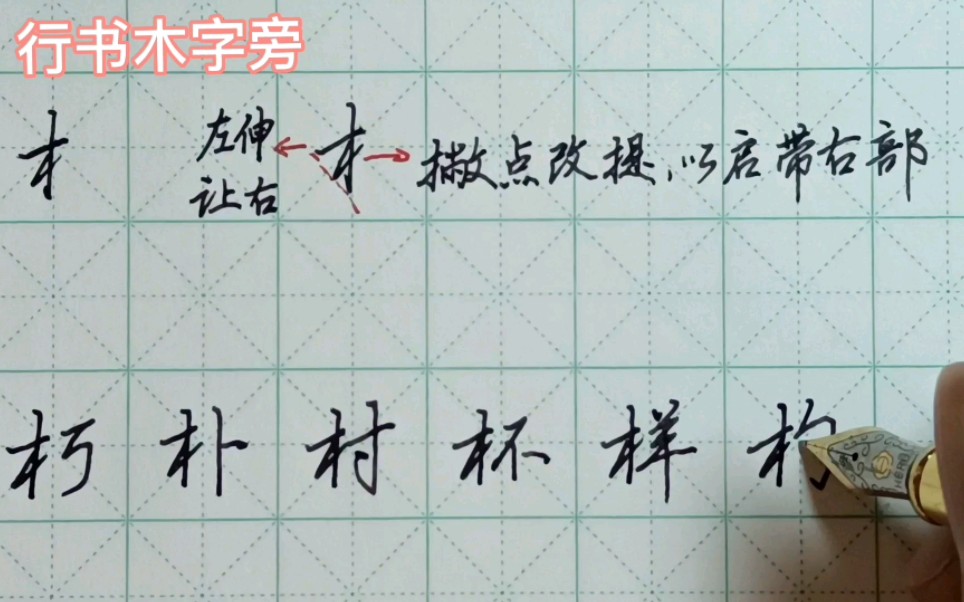 行书木字旁
木 左伸让右 木 撇点改提,以启带右部
朽 朴 村 杯 样